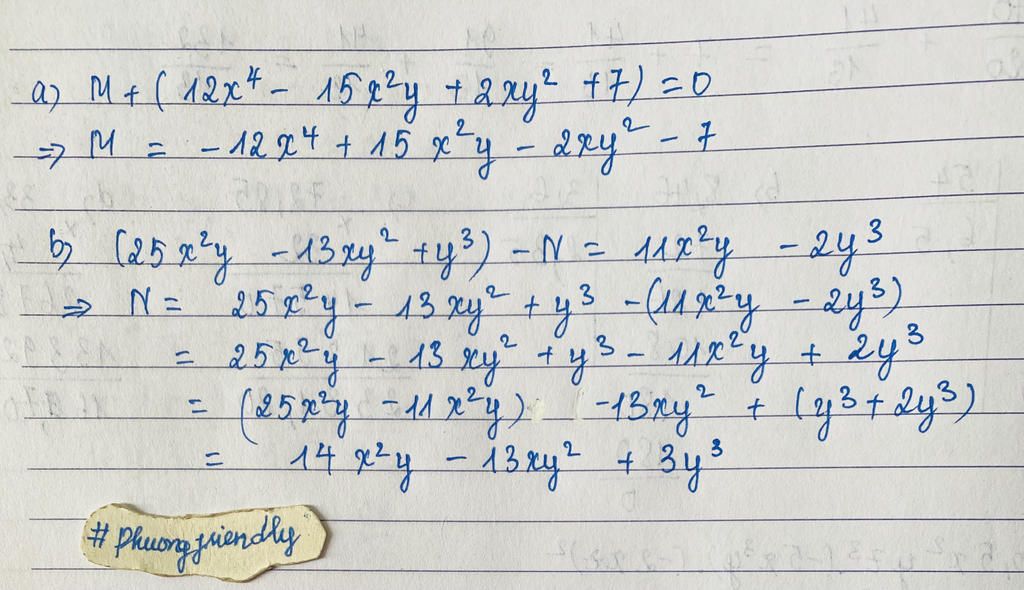 a) M + ( 12x⁴ - 15x²y + 2xy² + 7) = 0
=> M = -12x⁴ + 15x²y - 2xy² - 7
b) (25x²y - 13xy² + y³) - N = 11x²y - 2y³
=> N = 25x²y - 13xy² + y³ - (11x²y - 2y³)
= 25x²y - 13xy² + y³ - 11x²y + 2y³
= (25x²y - 11x²y) - 13xy² + (y³ + 2y³)
= 14x²y - 13xy² + 3y³
# Phuongfriendly